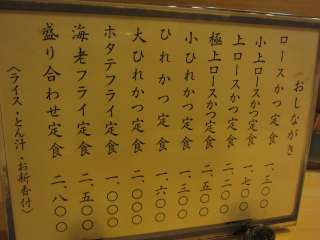 おしながき
ロースかつ定食 一、三〇〇
小上ロースかつ定食 一、七〇〇
上ロースかつ定食 二、一〇〇
極上ロースかつ定食 二、五〇〇
小ひれかつ定食 一、三〇〇
ひれかつ定食 一、六〇〇
大ひれかつ定食 二、〇〇〇
ホタテフライ定食 一、〇〇〇
海老フライ定食 二、五〇〇
盛り合わせ定食 二、八〇〇
〈ライス・とん汁・お新香付〉